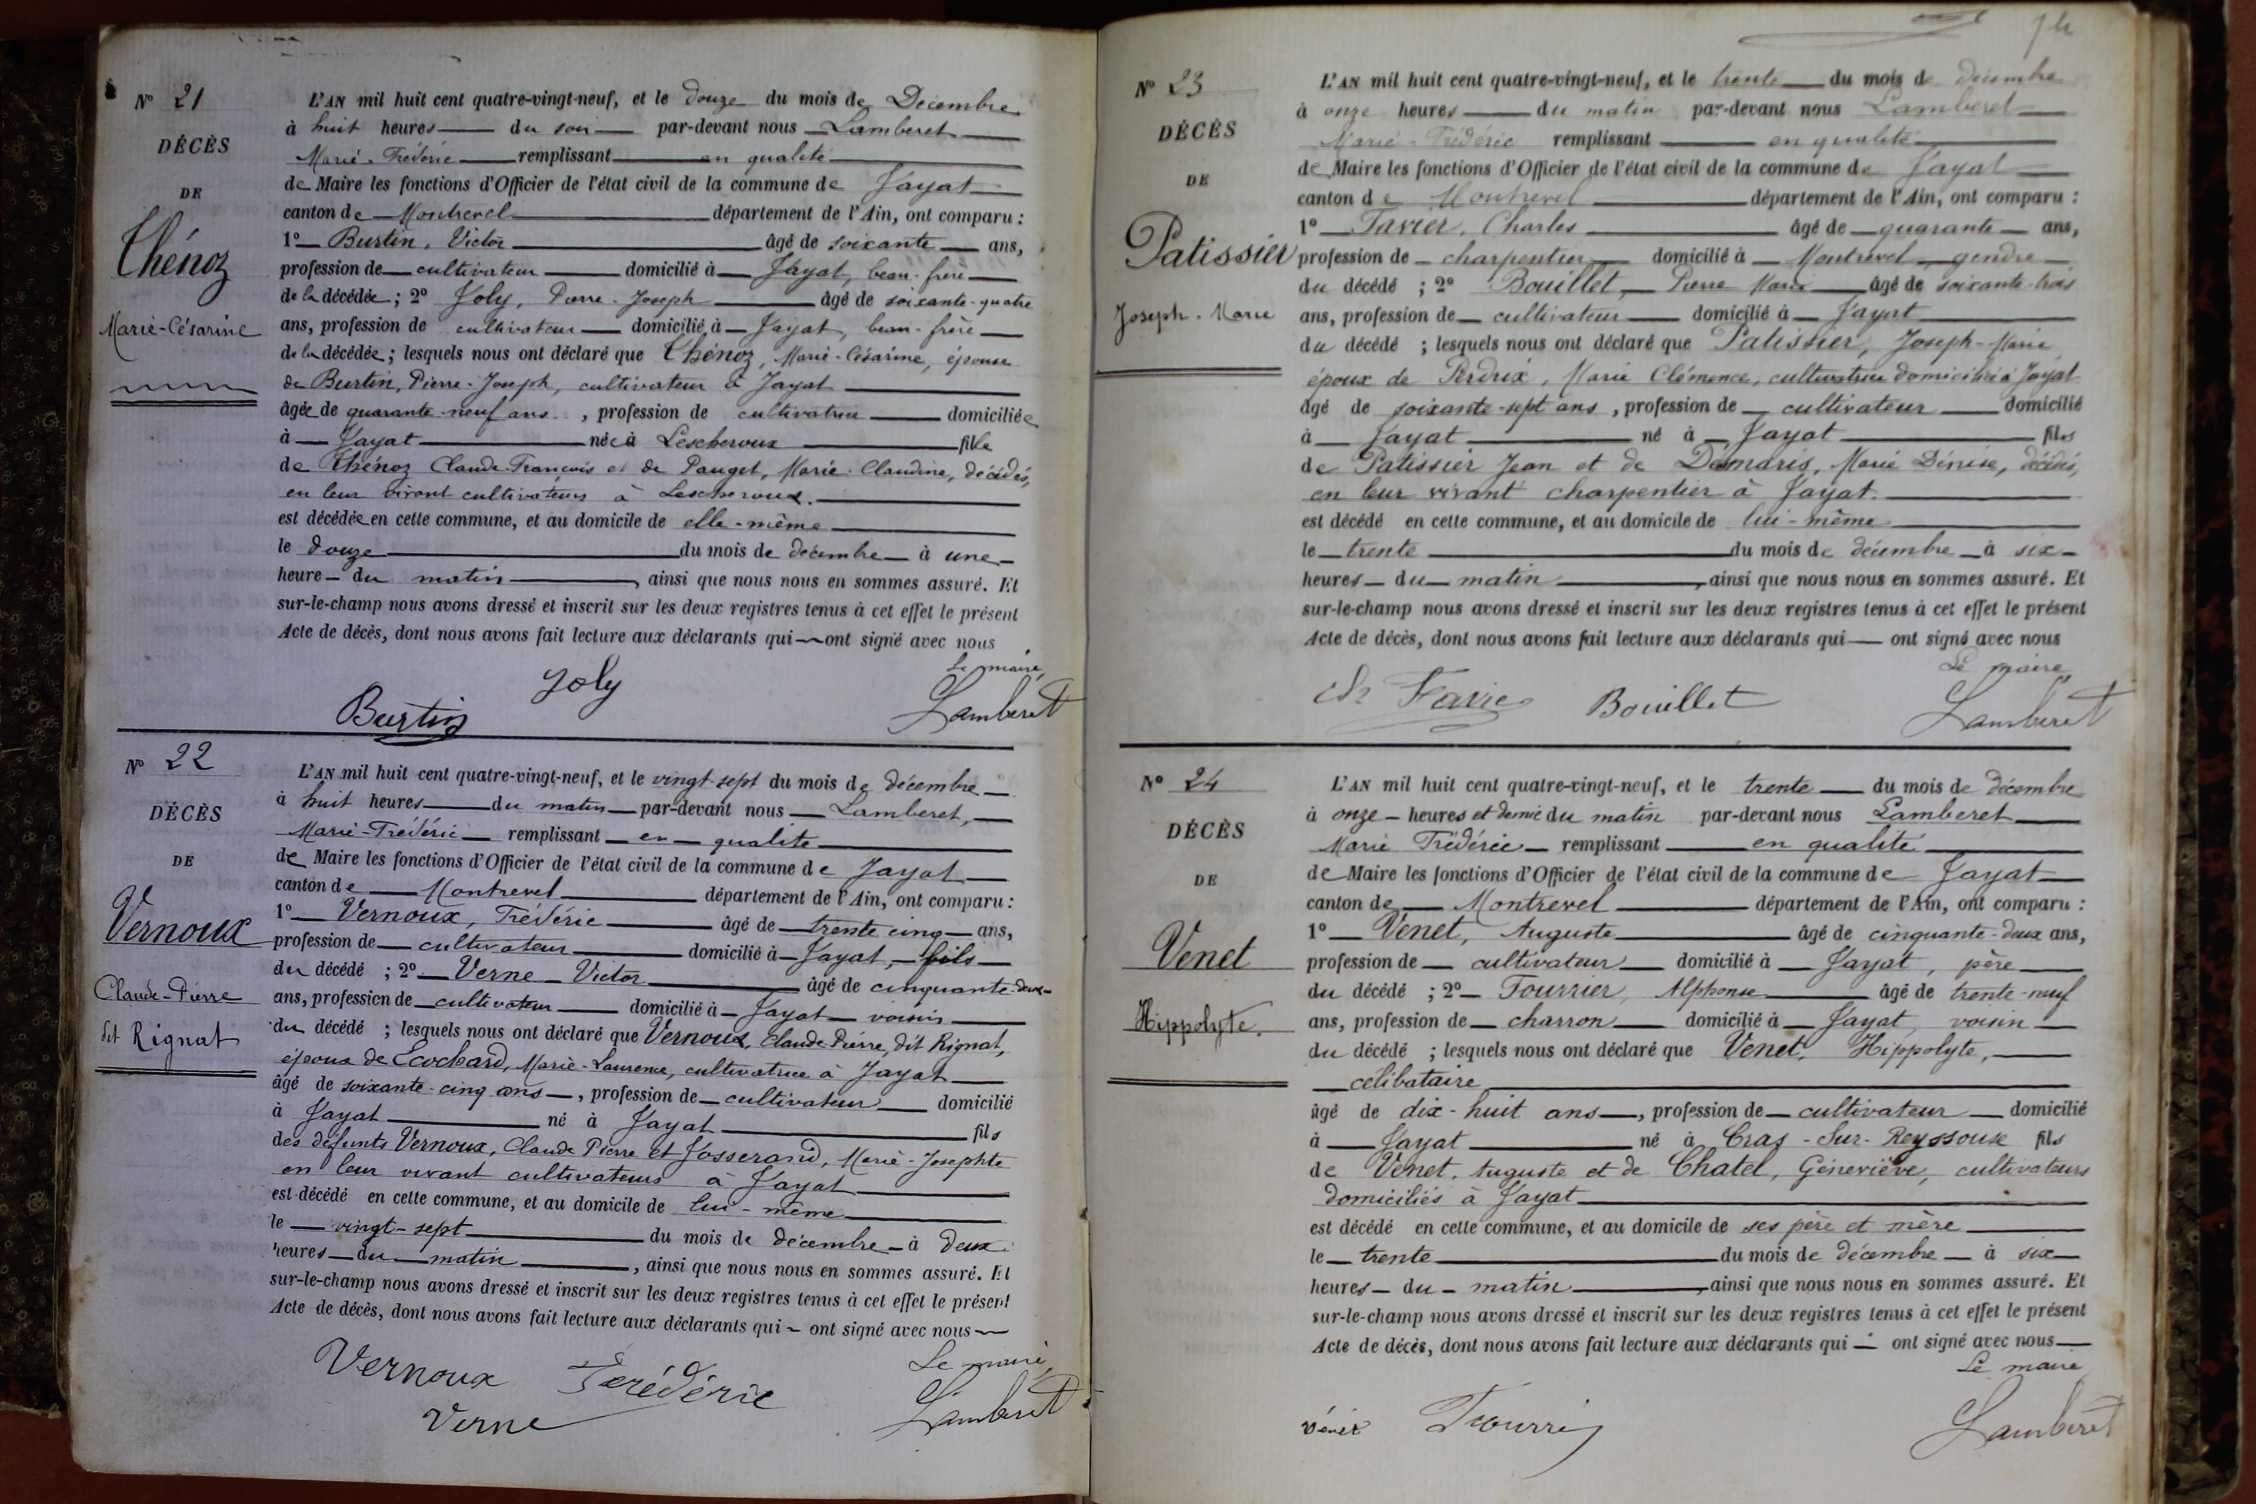 N° 21
DÉCÈS
DE
Thénoz
Marie-Césarine
L'AN mil huit cent quatre-vingt-neuf, et le douze du mois de Décembre
à huit heures du soir par-devant nous Lamberet
Marie-Frédéric remplissant en qualité
de Maire les fonctions d'Officier de l'état civil de la commune de Jayat
canton de Montrevel département de l'Ain, ont comparu :
1° Burtin, Victor âgé de soixante ans,
profession de cultivateur domicilié à Jayat, beau-frère
de la décédée ; 2° Joly, Pierre-Joseph âgé de soixante-quatre
ans, profession de cultivateur domicilié à Jayat, beau-frère
de la décédée ; lesquels nous ont déclaré que Thénoz, Marie-Césarine, épouse
de Burtin, Pierre-Joseph, cultivateur à Jayat
âgée de quarante-neuf ans, profession de cultivatrice domiciliée
à Jayat née à Lescheroux fille
de Thénoz Claude-François et de Pauget, Marie-Claudine, décédés,
en leur vivant cultivateurs à Lescheroux.
est décédée en cette commune, et au domicile de elle-même
le douze du mois de décembre à une
heure du matin, ainsi que nous nous en sommes assuré. Et
sur-le-champ nous avons dressé et inscrit sur les deux registres tenus à cet effet le présent
Acte de décès, dont nous avons fait lecture aux déclarants qui ont signé avec nous
Le maire,
Joly
Burtin
Lamberet
N° 22
DÉCÈS
DE
Vernoux
Claude-Pierre
dit Rignat
L'AN mil huit cent quatre-vingt-neuf, et le vingt-sept du mois de décembre
à huit heures du matin par-devant nous Lamberet,
Marie-Frédéric remplissant en qualité
de Maire les fonctions d'Officier de l'état civil de la commune de Jayat
canton de Montrevel département de l'Ain, ont comparu :
1° Vernoux, Frédéric âgé de trente cinq ans,
profession de cultivateur domicilié à Jayat, fils
du décédé ; 2° Verne Victor âgé de cinquante-deux
ans, profession de cultivateur domicilié à Jayat voisin
du décédé ; lesquels nous ont déclaré que Vernoux, Claude Pierre, dit Rignat,
époux de Ecochard, Marie-Laurence, cultivatrice à Jayat
âgé de soixante-cinq ans, profession de cultivateur domicilié
à Jayat né à Jayat fils
des défunts Vernoux, Claude Pierre et Josserand, Marie-Josephte
en leur vivant cultivateurs à Jayat
est décédé en cette commune, et au domicile de lui-même
le vingt-sept du mois de décembre à deux
heures du matin, ainsi que nous nous en sommes assuré. Et
sur-le-champ nous avons dressé et inscrit sur les deux registres tenus à cet effet le présent
Acte de décès, dont nous avons fait lecture aux déclarants qui ont signé avec nous
Le maire,
Vernoux Frédéric
Verne
Lamberet
74
N° 23
DÉCÈS
DE
Patissier
Joseph-Marie
L'AN mil huit cent quatre-vingt-neuf, et le trente du mois de décembre
à onze heures du matin par-devant nous Lamberet
Marie-Frédéric remplissant en qualité
de Maire les fonctions d'Officier de l'état civil de la commune de Jayat
canton de Montrevel département de l'Ain, ont comparu :
1° Favier, Charles âgé de quarante ans,
profession de charpentier domicilié à Montrevel gendre
du décédé ; 2° Bouillet, Pierre Marie âgé de soixante-trois
ans, profession de cultivateur domicilié à Jayat
du décédé ; lesquels nous ont déclaré que Patissier, Joseph-Marie
époux de Perdrix, Marie Clémence, cultivatrice domiciliée à Jayat
âgé de soixante-sept ans, profession de cultivateur domicilié
à Jayat né à Jayat fils
de Patissier Jean et de Damaris, Marie Dénise, décédés,
en leur vivant charpentier à Jayat.
est décédé en cette commune, et au domicile de lui-même
le trente du mois de décembre à six
heures du matin, ainsi que nous nous en sommes assuré. Et
sur-le-champ nous avons dressé et inscrit sur les deux registres tenus à cet effet le présent
Acte de décès, dont nous avons fait lecture aux déclarants qui ont signé avec nous
Le maire,
Ch Favier Bouillet
Lamberet
N° 24
DÉCÈS
DE
Venet
Hippolyte.
L'AN mil huit cent quatre-vingt-neuf, et le trente du mois de décembre
à onze heures et demie du matin par-devant nous Lamberet
Marie Frédéric remplissant en qualité
de Maire les fonctions d'Officier de l'état civil de la commune de Jayat
canton de Montrevel département de l'Ain, ont comparu :
1° Venet, Auguste âgé de cinquante-deux ans,
profession de cultivateur domicilié à Jayat, père
du décédé ; 2° Fourrier, Alphonse âgé de trente-neuf
ans, profession de charron domicilié à Jayat, voisin
du décédé ; lesquels nous ont déclaré que Venet, Hippolyte,
célibataire
âgé de dix-huit ans, profession de cultivateur domicilié
à Jayat né à Cras-Sur-Reyssouse fils
de Venet, Auguste et de Chatel, Géneviève, cultivateurs
domiciliés à Jayat
est décédé en cette commune, et au domicile de ses père et mère
le trente du mois de décembre à six
heures du matin, ainsi que nous nous en sommes assuré. Et
sur-le-champ nous avons dressé et inscrit sur les deux registres tenus à cet effet le présent
Acte de décès, dont nous avons fait lecture aux déclarants qui ont signé avec nous
Le maire
Lamberet